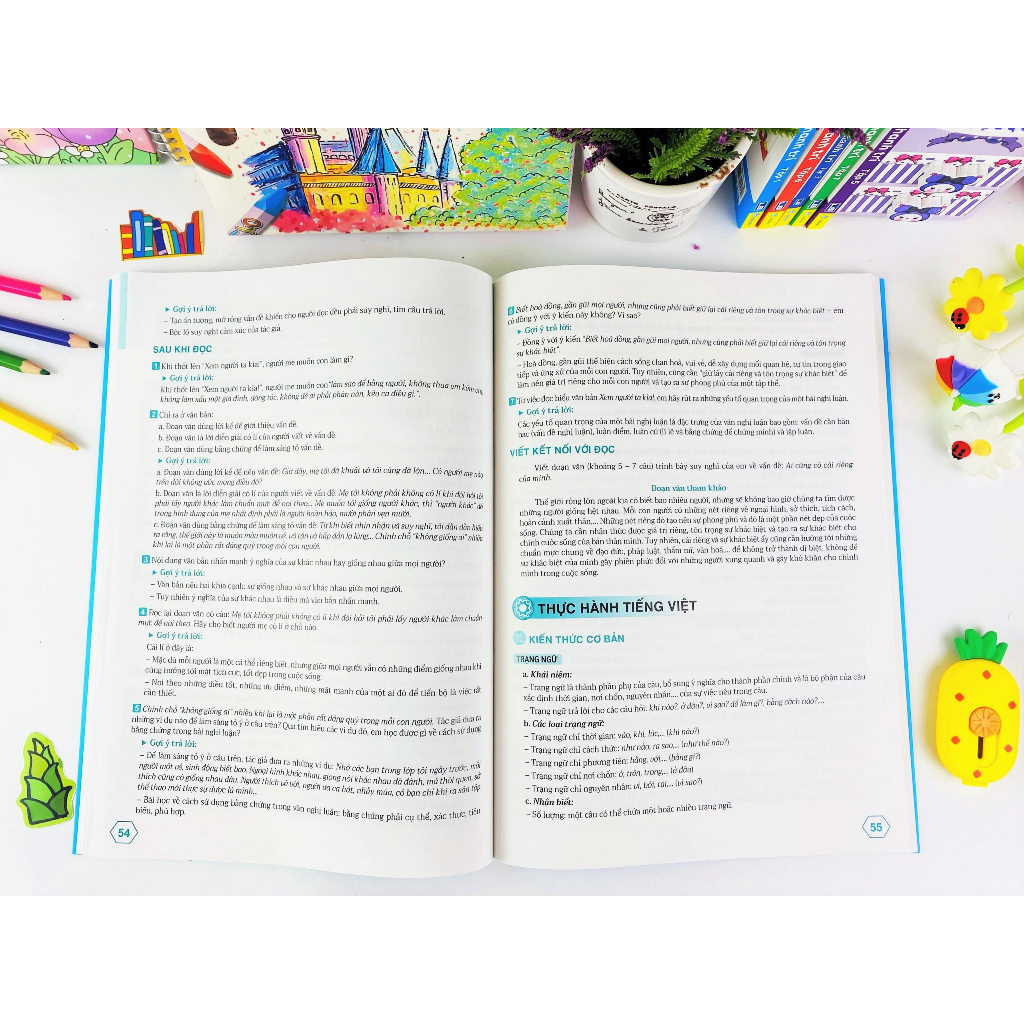 ▶ Gợi ý trả lời:
– Tạo ấn tượng, mở rộng vấn đề khiến cho người đọc đều phải suy nghĩ, tìm câu trả lời.
– Bộc lộ suy nghĩ cảm xúc của tác giả.
SAU KHI ĐỌC
1 Khi thốt lên "Xem người ta kìa!", người mẹ muốn con làm gì?
▶ Gợi ý trả lời:
Khi thốt lên "Xem người ta kìa!", người mẹ muốn con "làm sao để bằng người, không thua em kém chị,
không làm xấu mặt gia đình, dòng tộc, không để ai phải phàn nàn, kêu ca điều gì.".
2 Chỉ ra ở văn bản:
a. Đoạn văn dùng lời kể để giới thiệu vấn đề.
b. Đoạn văn là lời diễn giải có lí của người viết về vấn đề.
c. Đoạn văn dùng bằng chứng để làm sáng tỏ vấn đề.
▶ Gợi ý trả lời:
a. Đoạn văn dùng lời kể để nêu vấn đề: Giờ đây, mẹ tôi đã khuất và tôi cũng đã lớn... Có người mẹ nào
trên đời không ước mong điều đó?
b. Đoạn văn là lời diễn giải có lí của người viết về vấn đề: Mẹ tôi không phải không có lí khi đòi hỏi tôi
phải lấy người khác làm chuẩn mực để noi theo... Mẹ muốn tôi giống người khác, thì "người khác" đó
trong hình dung của mẹ nhất định phải là người hoàn hảo, mười phân vẹn mười.
c. Đoạn văn dùng bằng chứng để làm sáng tỏ vấn đề: Từ khi biết nhìn nhận và suy nghĩ, tôi dần dần hiểu
ra rằng, thế giới này là muôn màu muôn vẻ, vô tận và hấp dẫn lạ lùng... Chính chỗ "không giống ai" nhiều
khi lại là một phần rất đáng quý trong mỗi con người.
3 Nội dung văn bản nhấn mạnh ý nghĩa của sự khác nhau hay giống nhau giữa mọi người?
▶ Gợi ý trả lời:
– Văn bản nêu hai khía cạnh: sự giống nhau và sự khác nhau giữa mọi người.
– Tuy nhiên ý nghĩa của sự khác nhau là điều mà văn bản nhấn mạnh.
4 Đọc lại đoạn văn có câu: Mẹ tôi không phải không có lí khi đòi hỏi tôi phải lấy người khác làm chuẩn
mực để noi theo. Hãy cho biết người mẹ có lí ở chỗ nào.
▶ Gợi ý trả lời:
Cái lí ở đây là:
– Mặc dù mỗi người là một cá thể riêng biệt, nhưng giữa mọi người vẫn có những điểm giống nhau khi
cùng hướng tới mặt tích cực, tốt đẹp trong cuộc sống.
– Noi theo những điều tốt, những ưu điểm, những mặt mạnh của một ai đó để tiến bộ là việc rất
cần thiết.
5 Chính chỗ "không giống ai" nhiều khi lại là một phần rất đáng quý trong mỗi con người. Tác giả đưa ra
những ví dụ nào để làm sáng tỏ ý ở câu trên? Qua tìm hiểu các ví dụ đó, em học được gì về cách sử dụng
bằng chứng trong bài nghị luận?
▶ Gợi ý trả lời:
– Để làm sáng tỏ ý ở câu trên, tác giả đưa ra những ví dụ: Nhớ các bạn trong lớp tôi ngày trước, mỗi
người một vẻ, sinh động biết bao. Ngoại hình khác nhau, giọng nói khác nhau đã đành, mà thói quen, sở
thích cũng có giống nhau đâu. Người thích vẽ vời, người ưa ca hát, nhảy múa, có bạn chỉ khi ra sân tập
thể thao mới thực sự được là mình...
– Bài học về cách sử dụng bằng chứng trong văn nghị luận: bằng chứng phải cụ thể, xác thực, tiêu
biểu, phù hợp.
54
6 Biết hoà đồng, gần gũi mọi người, nhưng cũng phải biết giữ lại cái riêng và tôn trọng sự khác biệt – em
có đồng ý với ý kiến này không? Vì sao?
▶ Gợi ý trả lời:
– Đồng ý với ý kiến "Biết hoà đồng, gần gũi mọi người, nhưng cũng phải biết giữ lại cái riêng và tôn trọng
sự khác biệt".
– Hoà đồng, gần gũi thể hiện cách sống chan hoà, vui vẻ, dễ xây dựng mối quan hệ, tự tin trong giao
tiếp và ứng xử của mỗi con người. Tuy nhiên, cũng cần "giữ lấy cái riêng và tôn trọng sự khác biệt" để
làm nên giá trị riêng cho mỗi con người và tạo ra sự phong phú của một tập thể.
7 Từ việc đọc hiểu văn bản Xem người ta kìa!, em hãy rút ra những yếu tố quan trọng của một bài nghị luận.
▶ Gợi ý trả lời:
Các yếu tố quan trọng của một bài nghị luận là đặc trưng của văn nghị luận bao gồm: vấn đề cần bàn
bạc (vấn đề nghị luận), luận điểm, luận cứ (lí lẽ và bằng chứng để chứng minh) và lập luận.
VIẾT KẾT NỐI VỚI ĐỌC
Viết đoạn văn (khoảng 5 – 7 câu) trình bày suy nghĩ của em về vấn đề: Ai cũng có cái riêng
của mình.
Đoạn văn tham khảo
Thế giới rộng lớn ngoài kia có biết bao nhiêu người, nhưng sẽ không bao giờ chúng ta tìm được
những người giống hệt nhau. Mỗi con người có những nét riêng về ngoại hình, sở thích, tích cách,
hoàn cảnh xuất thân,... Những nét riêng đó tạo nên sự phong phú và đó là một phần nét đẹp của cuộc
sống. Chúng ta cần nhận thức được giá trị riêng, tôn trọng sự khác biệt và tạo ra sự khác biệt cho
chính cuộc sống của bản thân mình. Tuy nhiên, cái riêng và sự khác biệt ấy cũng cần hướng tới những
chuẩn mực chung về đạo đức, pháp luật, thẩm mĩ, văn hoá,... để không trở thành dị biệt, không để
sự khác biệt của mình gây phiền phức đối với những người xung quanh và gây khó khăn cho chính
mình trong cuộc sống.
THỰC HÀNH TIẾNG VIỆT
KIẾN THỨC CƠ BẢN
TRẠNG NGỮ
a. Khái niệm:
– Trạng ngữ là thành phần phụ của câu, bổ sung ý nghĩa cho thành phần chính và là bộ phận của câu
xác định thời gian, nơi chốn, nguyên nhân,... của sự việc nêu trong câu.
– Trạng ngữ trả lời cho các câu hỏi: khi nào?, ở đâu?, vì sao? để làm gì?, bằng cách nào?,...
b. Các loại trạng ngữ:
– Trạng ngữ chỉ thời gian: vào, khi, lúc,... (khi nào?)
– Trạng ngữ chỉ cách thức: như nào, ra sao,... (như thế nào?)
– Trạng ngữ chỉ phương tiện: bằng, với,... (bằng gì?)
– Trạng ngữ chỉ nơi chốn: ở, trên, trong,... (ở đâu)
– Trạng ngữ chỉ nguyên nhân: vì, bởi, tại,... (vì sao?)
c. Nhận biết:
– Số lượng: một câu có thể chứa một hoặc nhiều trạng ngữ.
55